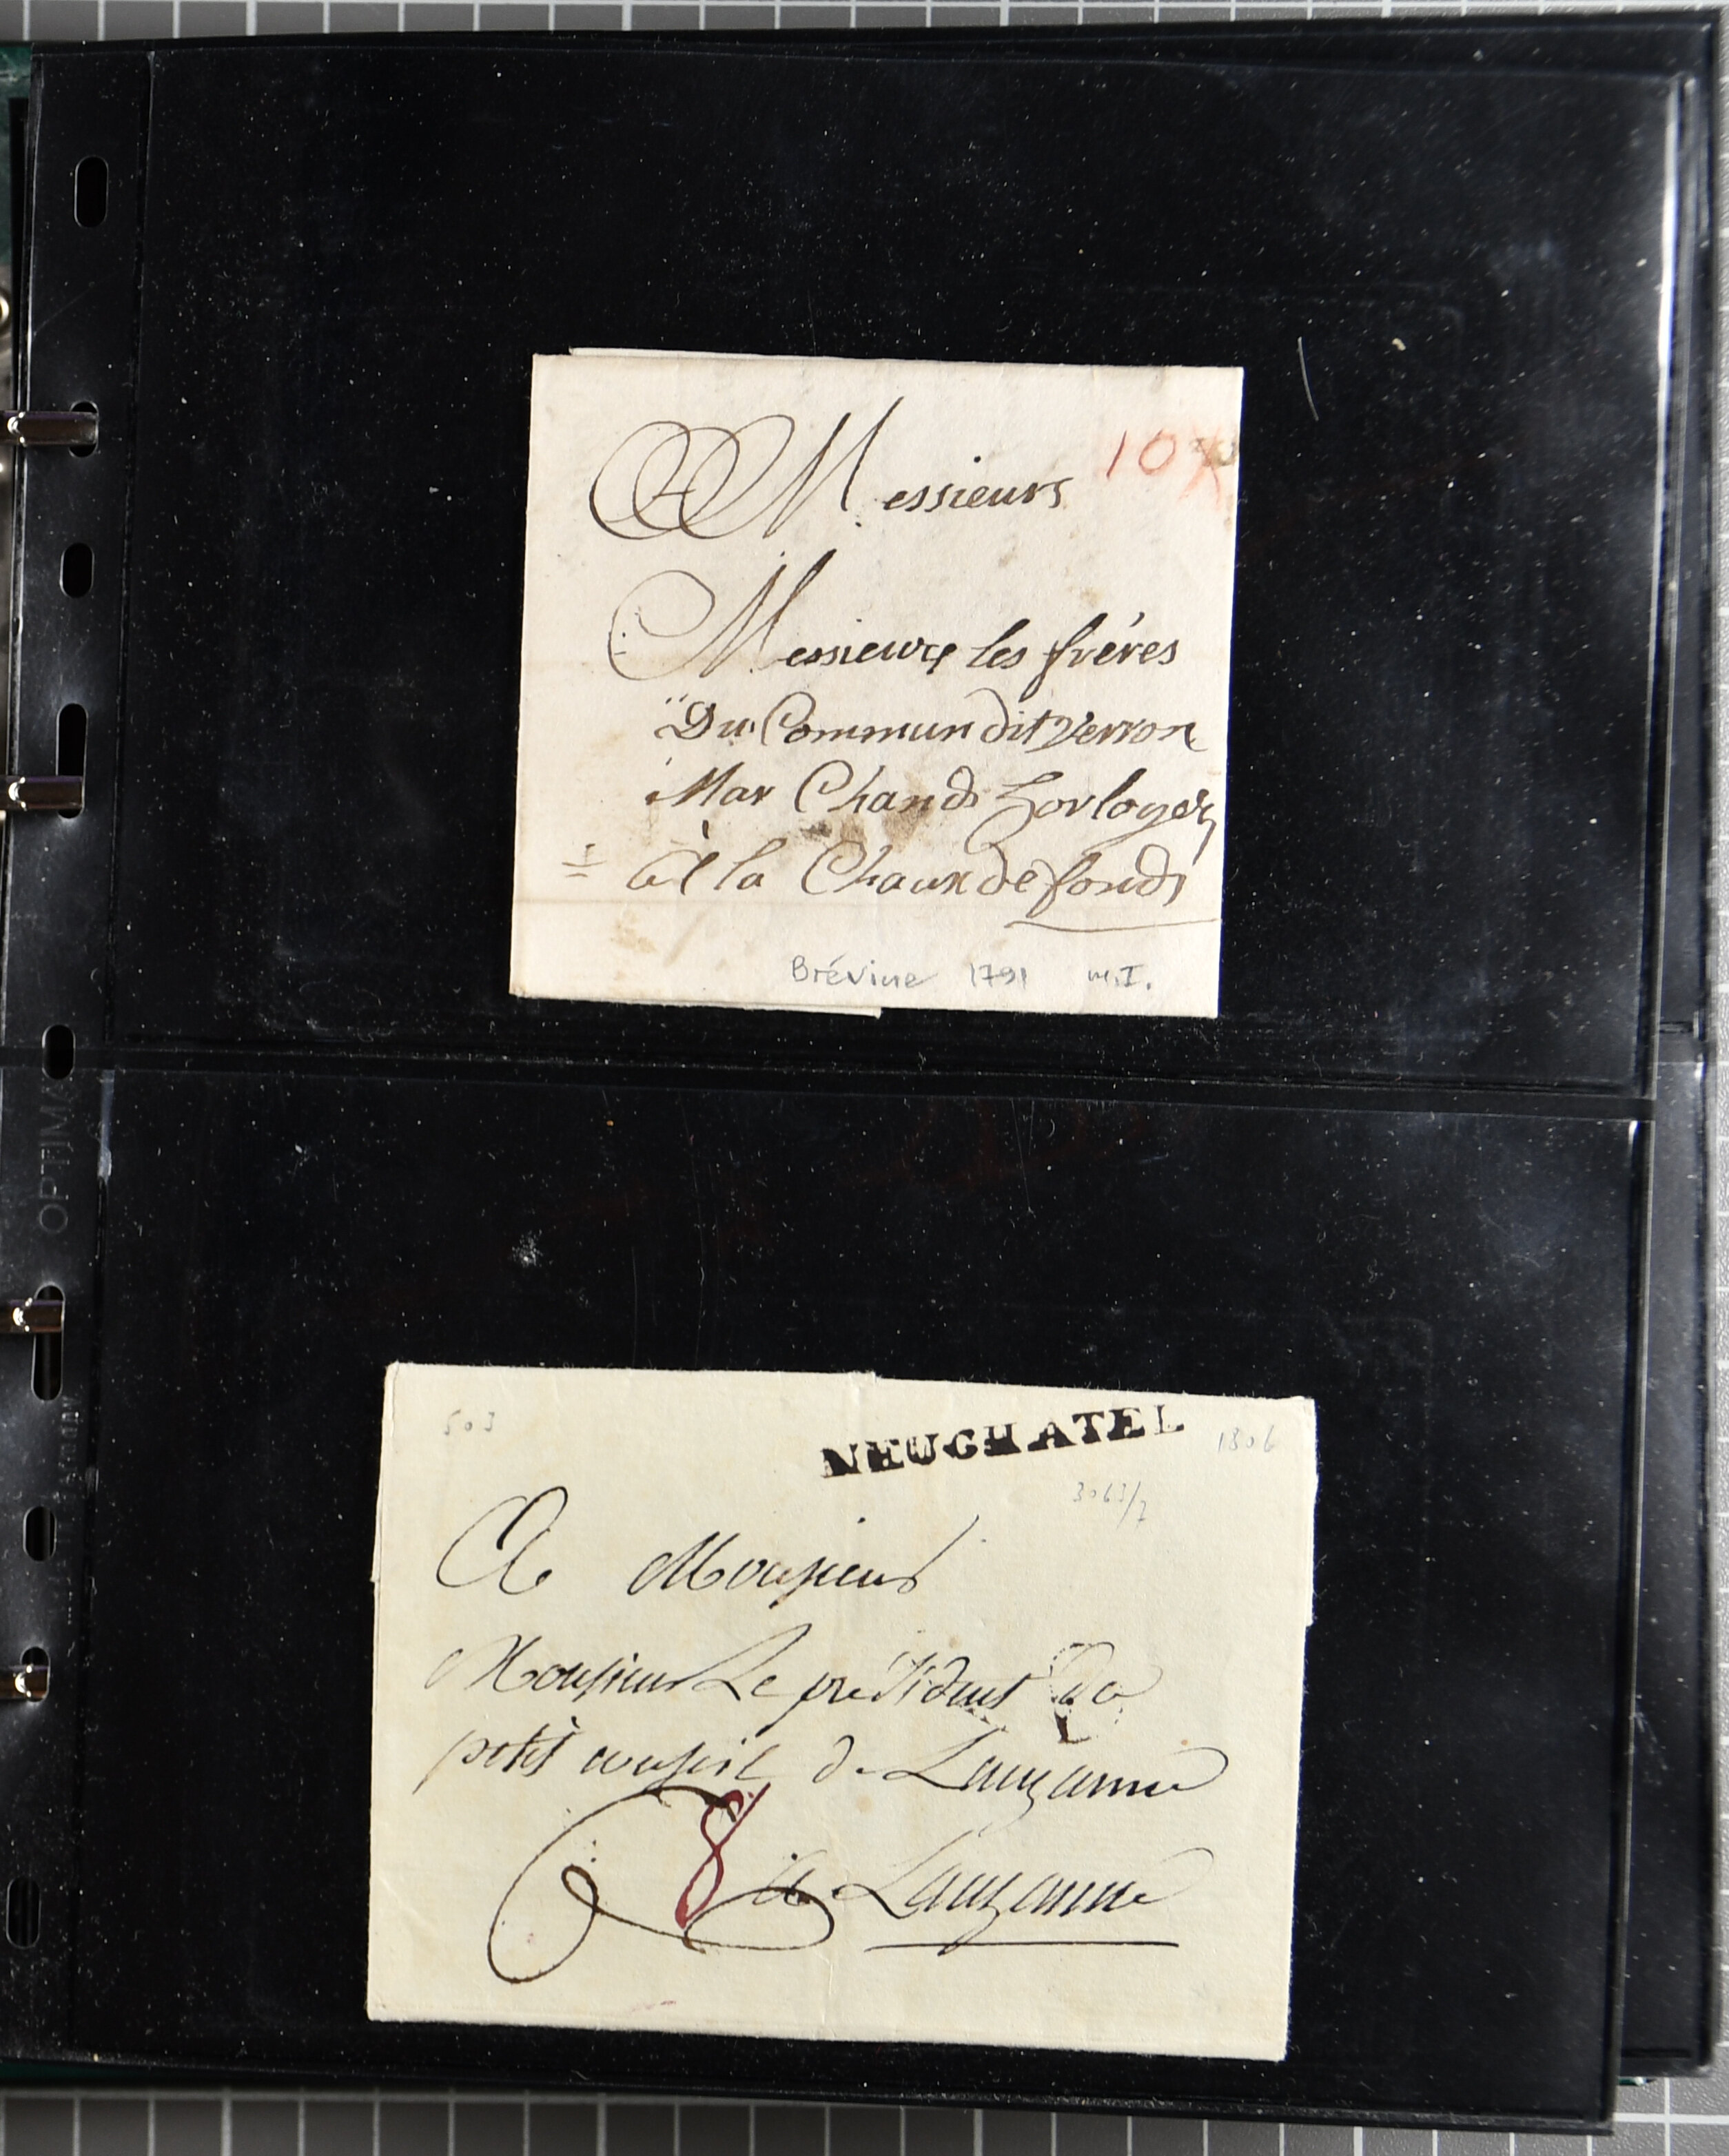 Messieurs 10X
Messieurs les fréres
Du Commun dit Verron
Mar Chands horlogers
à la Chaux de fonds
Brévine 1791 m.I.
OPTIMA
503 NEUCHATEL 1806
3063/7
A Monsieur
Monsieur Le président du
petit conseil de Lauzanne
8 à Lauzanne